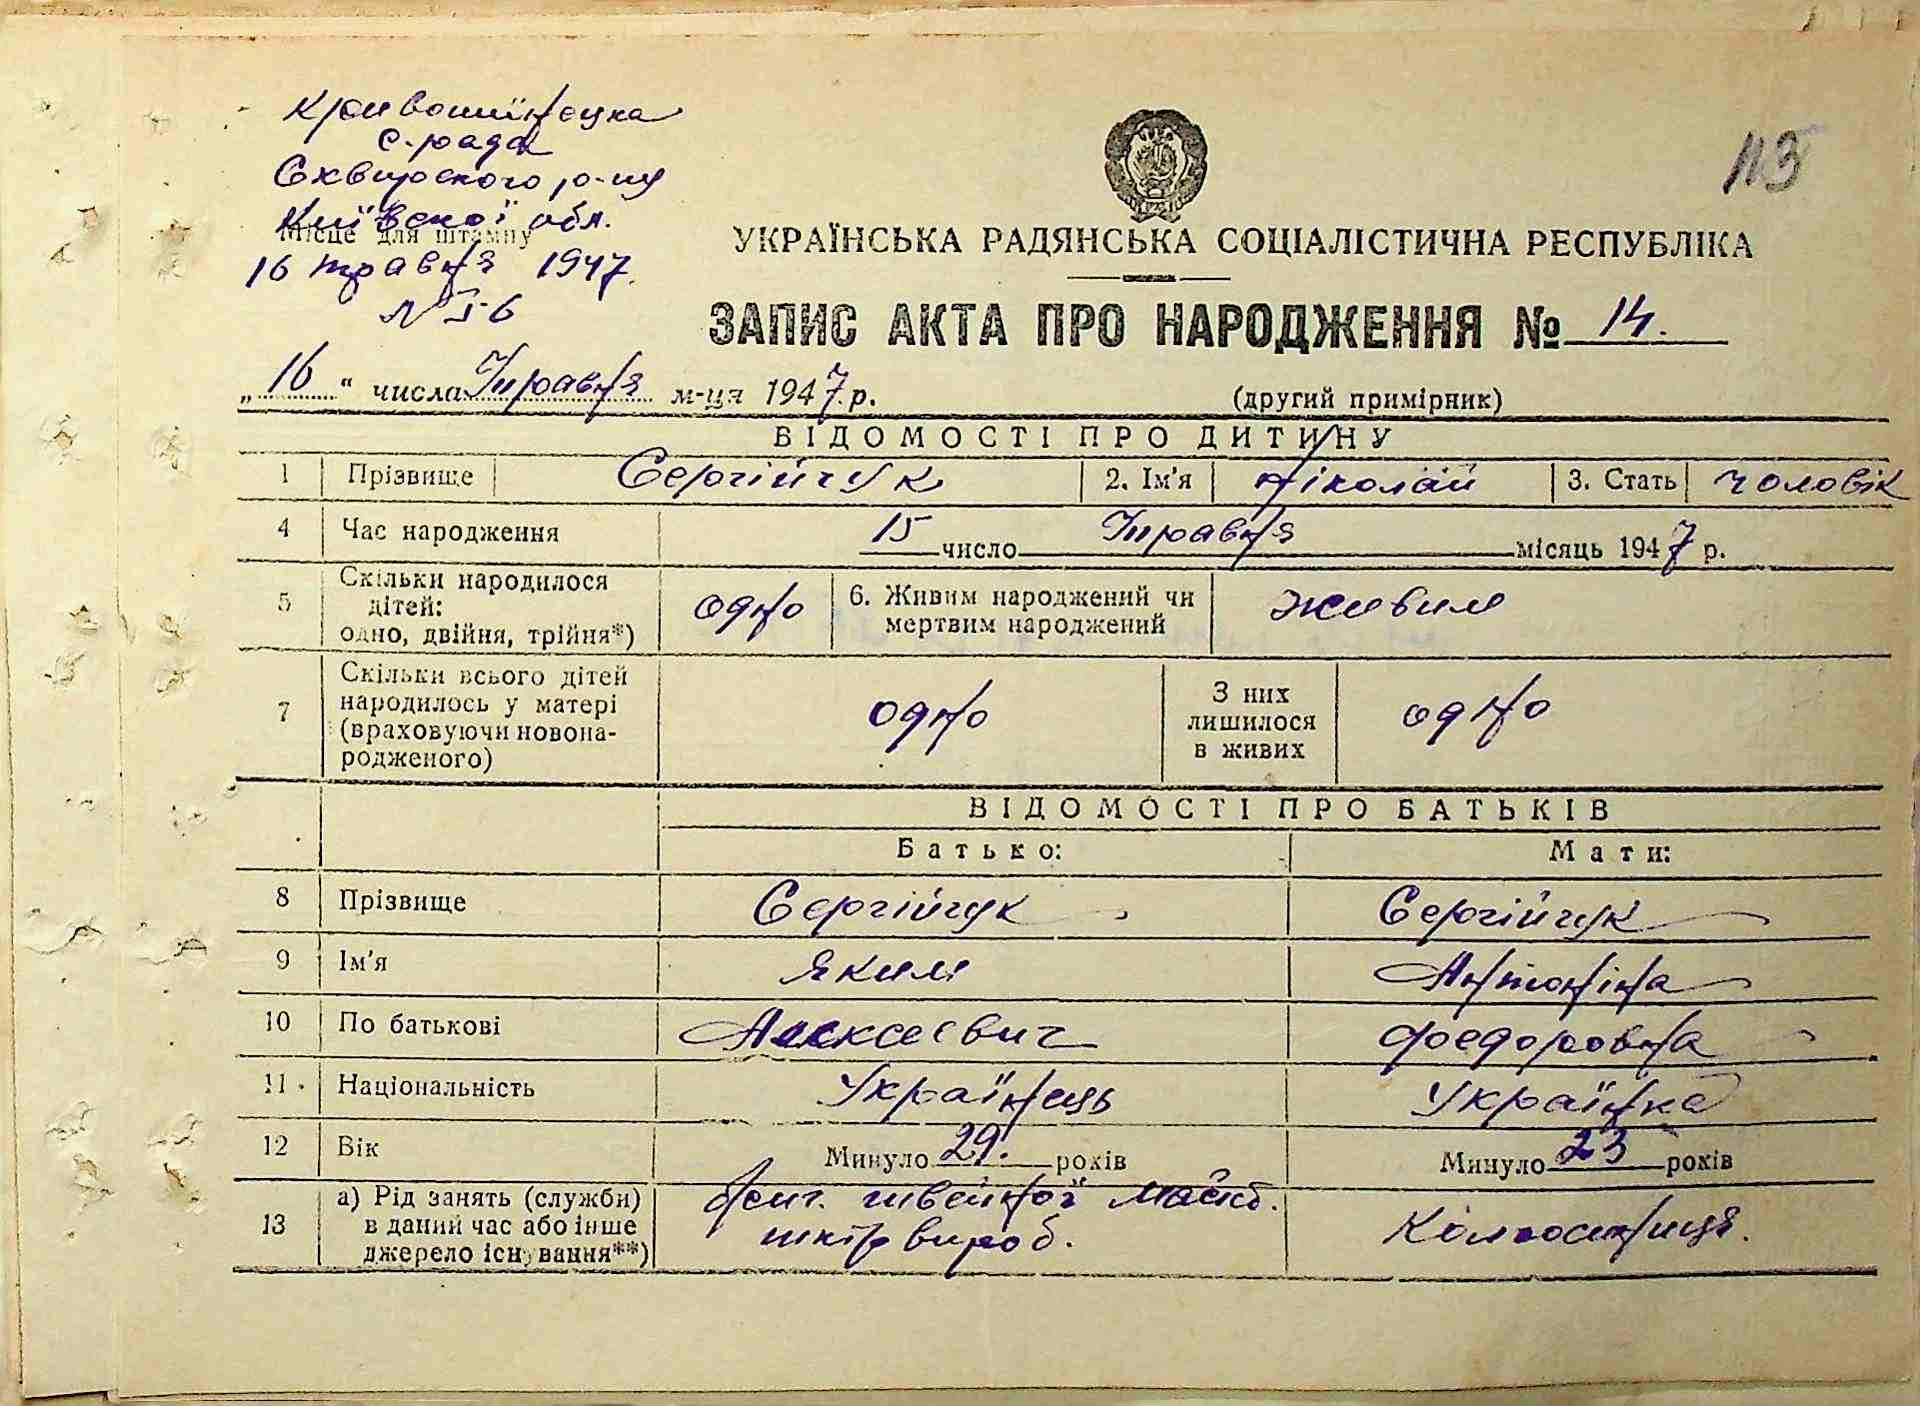 Кривошиїнецка
с. рада
Сквирского р-ну
Київскої обл.
Місце для штампу
16 травня 1947.
N I-6
113
УКРАЇНСЬКА РАДЯНСЬКА СОЦІАЛІСТИЧНА РЕСПУБЛІКА
ЗАПИС АКТА ПРО НАРОДЖЕННЯ № 14.
„16“ числа Травня м-ця 1947 р.
(другий примірник)
ВІДОМОСТІ ПРО ДИТИНУ
1 Прізвище Сергійчук 2. Ім'я Ніколай 3. Стать чоловік
4 Час народження 15 число Травня місяць 1947 р.
5 Скільки народилося дітей: одно, двійня, трійня*) одно 6. Живим народжений чи мертвим народжений живим
7 Скільки всього дітей народилось у матері (враховуючи новонародженого) одно З них лишилося в живих одно
ВІДОМОСТІ ПРО БАТЬКІВ
Батько: Мати:
8 Прізвище Сергійчук Сергійчук
9 Ім'я Яким Антоніна
10 По батькові Алексеевич Федоровна
11 Національність Українець Українка
12 Вік Минуло 29. років Минуло 23 років
13 а) Рід занять (служби) в даний час або інше джерело існування**) швейної шкір вироб. Колгоспниця.